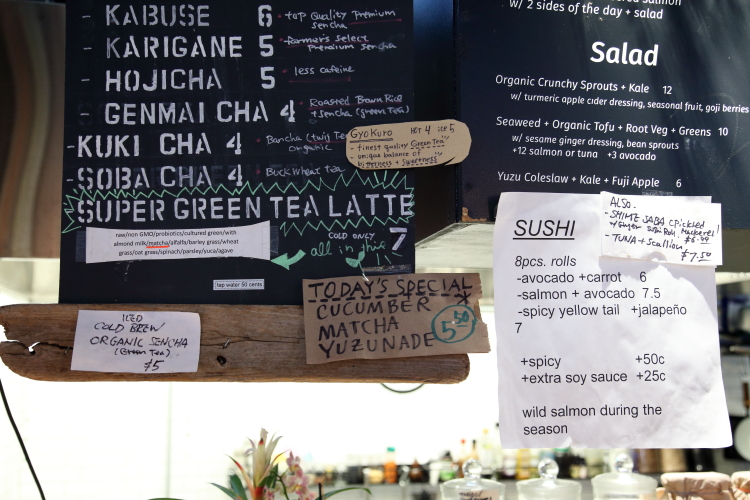 - KABUSE 6 • top Quality Premium
sencha
- KARIGANE 5 • farmer's select
Premium sencha
- HOJICHA 5 • less cafeine
- GENMAI CHA 4 • Roasted Brown Rice
+ sencha (green Tea)
- KUKI CHA 4 • Bancha (twij Te
organic
- SOBA CHA 4 • Buckwheat tea
SUPER GREEN TEA LATTE
raw/non GMO/probiotics/cultured green/with
almond milk/matcha/alfalfa/barley grass/wheat
grass/oat grass/spinach/parsley/yuca/agave
COLD ONLY 7
all in this
tap water 50 cents
GYOKURO HOT 4 ICE 5
- finest quality Green Tea
- unique balance of
bitterness + sweetness
ICED
COLD BREW
ORGANIC SENCHA
(Green Tea)
$5
TODAY'S SPECIAL
CUCUMBER
MATCHA
YUZUNADE
5.50
w/ 2 sides of the day + salad
Salad
Organic Crunchy Sprouts + Kale 12
w/ turmeric apple cider dressing, seasonal fruit, goji berries
Seaweed + Organic Tofu + Root Veg + Greens 10
w/ sesame ginger dressing, bean sprouts
+12 salmon or tuna +3 avocado
Yuzu Coleslaw + Kale + Fuji Apple 6
SUSHI
8pcs. rolls
-avocado +carrot 6
-salmon + avocado 7.5
-spicy yellow tail +jalapeño
7
+spicy +50c
+extra soy sauce +25c
wild salmon during the
season
ALSO.
- SHIME SABA (pickled
+ Ginger Mackerel)
$6.99
- TUNA + Scallion
$7.50